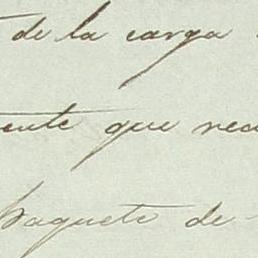 de la carga
ente que rec
paquete de